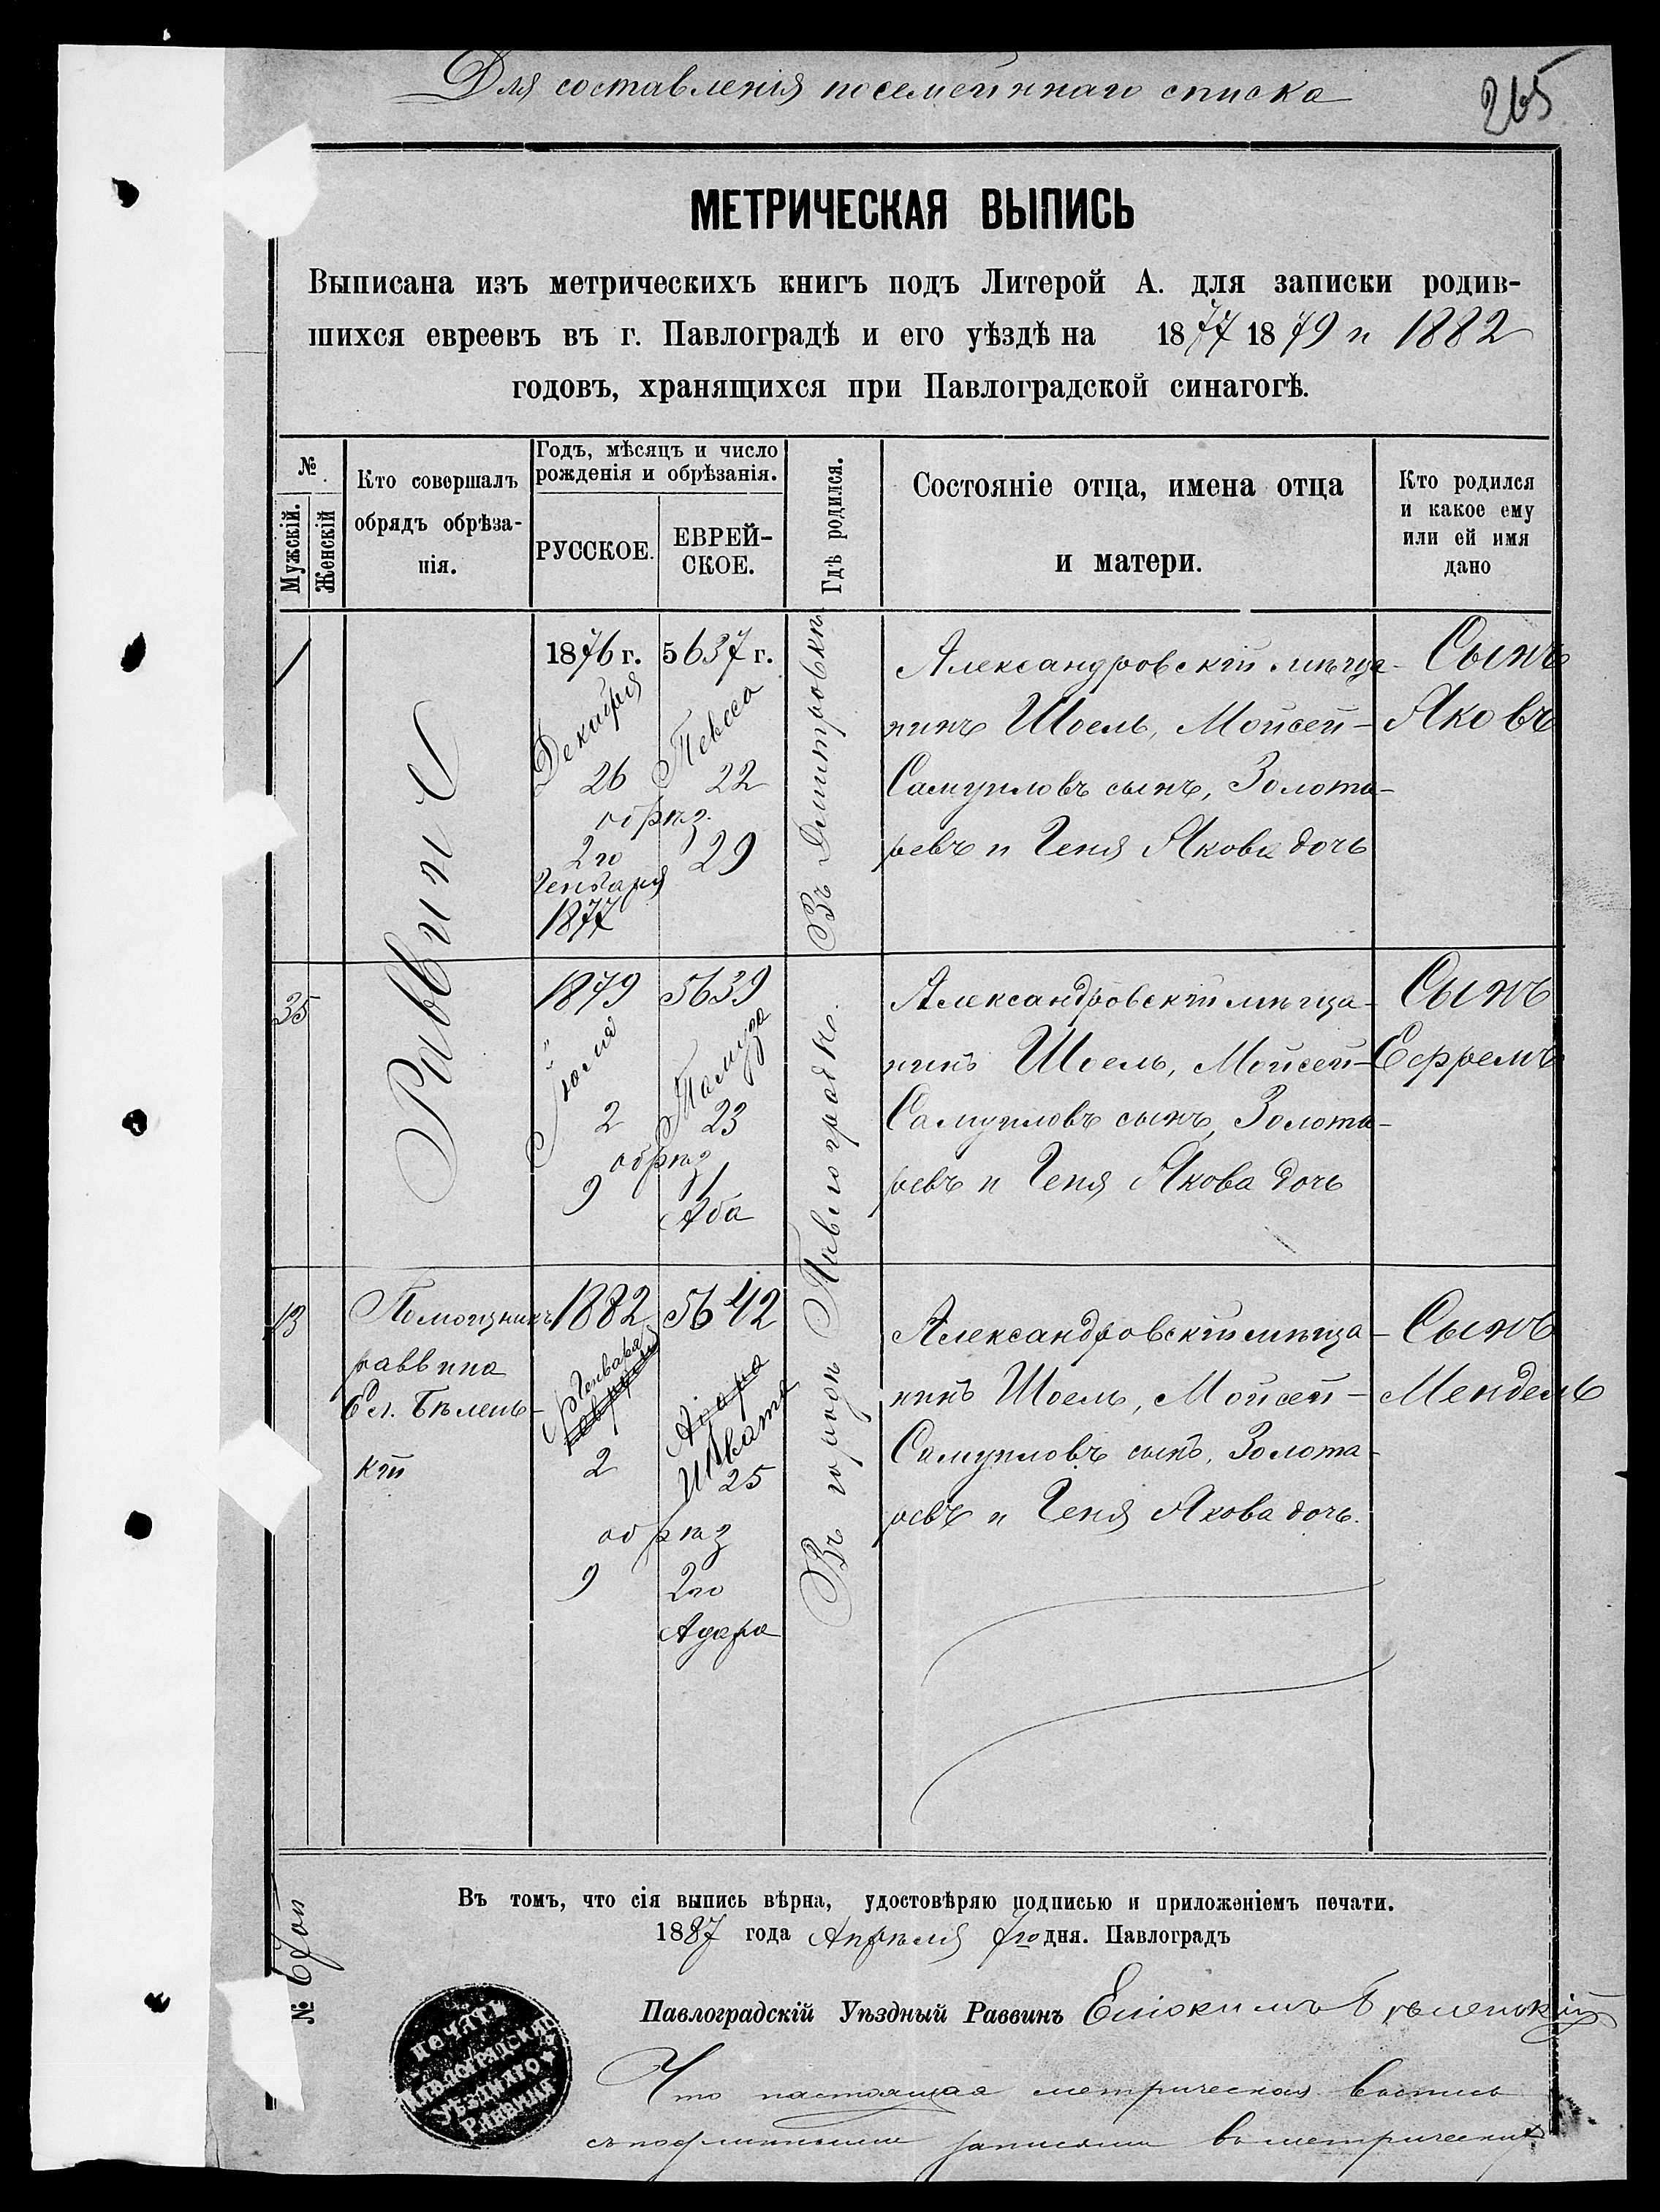 Для составленія посемейнаго списка
265
МЕТРИЧЕСКАЯ ВЫПИСЬ
Выписана изъ метрическихъ книгъ подъ Литерой А. для записки родив-
шихся евреевъ въ г. Павлоградѣ и его уѣздѣ на 1877 1879 и 1882
годовъ, хранящихся при Павлоградской синагогѣ.
№
Мужскій.
Женскій
Кто совершалъ
обрядъ обрѣза-
нія.
Годъ, мѣсяцъ и число
рожденія и обрѣзанія.
РУССКОЕ.
ЕВРЕЙ-
СКОЕ.
Гдѣ родился.
Состояніе отца, имена отца
и матери.
Кто родился
и какое ему
или ей имя
дано
1
Раввинъ
1876 г.
Декабря
26
обрѣз.
2го
Генваря
1877
5637 г.
Тевеса
22
29
Въ Дмитровкѣ
Александровскій мѣща-
нинъ Шоель, Мойсей-
Самуиловъ сынъ, Золота-
ревъ и Геня Якова дочь
Сынъ
Яковъ
35
1879
Іюля
2
обрѣз
9
5639
Тамуза
23
1
Аба
Въ городѣ Павлоградѣ.
Александровскій мѣща-
нинъ Шоель, Мойсей-
Самуиловъ сынъ, Золота-
ревъ и Геня Якова дочь
Сынъ
Ефремъ
13
Помощникъ
раввина
Ел. Бѣлень-
кій
1882
Генваря
2
обрѣз
9
5642
Шватъ
25
2го
Адара
Александровскій мѣща-
нинъ Шоель, Мойсей-
Самуиловъ сынъ, Золота-
ревъ и Геня Якова дочь.
Сынъ
Мендель
Въ томъ, что сія выпись вѣрна, удостовѣряю подписью и приложеніемъ печати.
1887 года Апрѣля 7го дня. Павлоградъ
№ 67
Павлоградскій Уѣздный Раввинъ Еліокимъ Бѣленькій
ПЕЧАТЬ
ПАВЛОГРАДСКАГО
УѢЗДНАГО
РАВВИНА
Что настоящая метрическая выпись
съ подлинными записями въ метрических